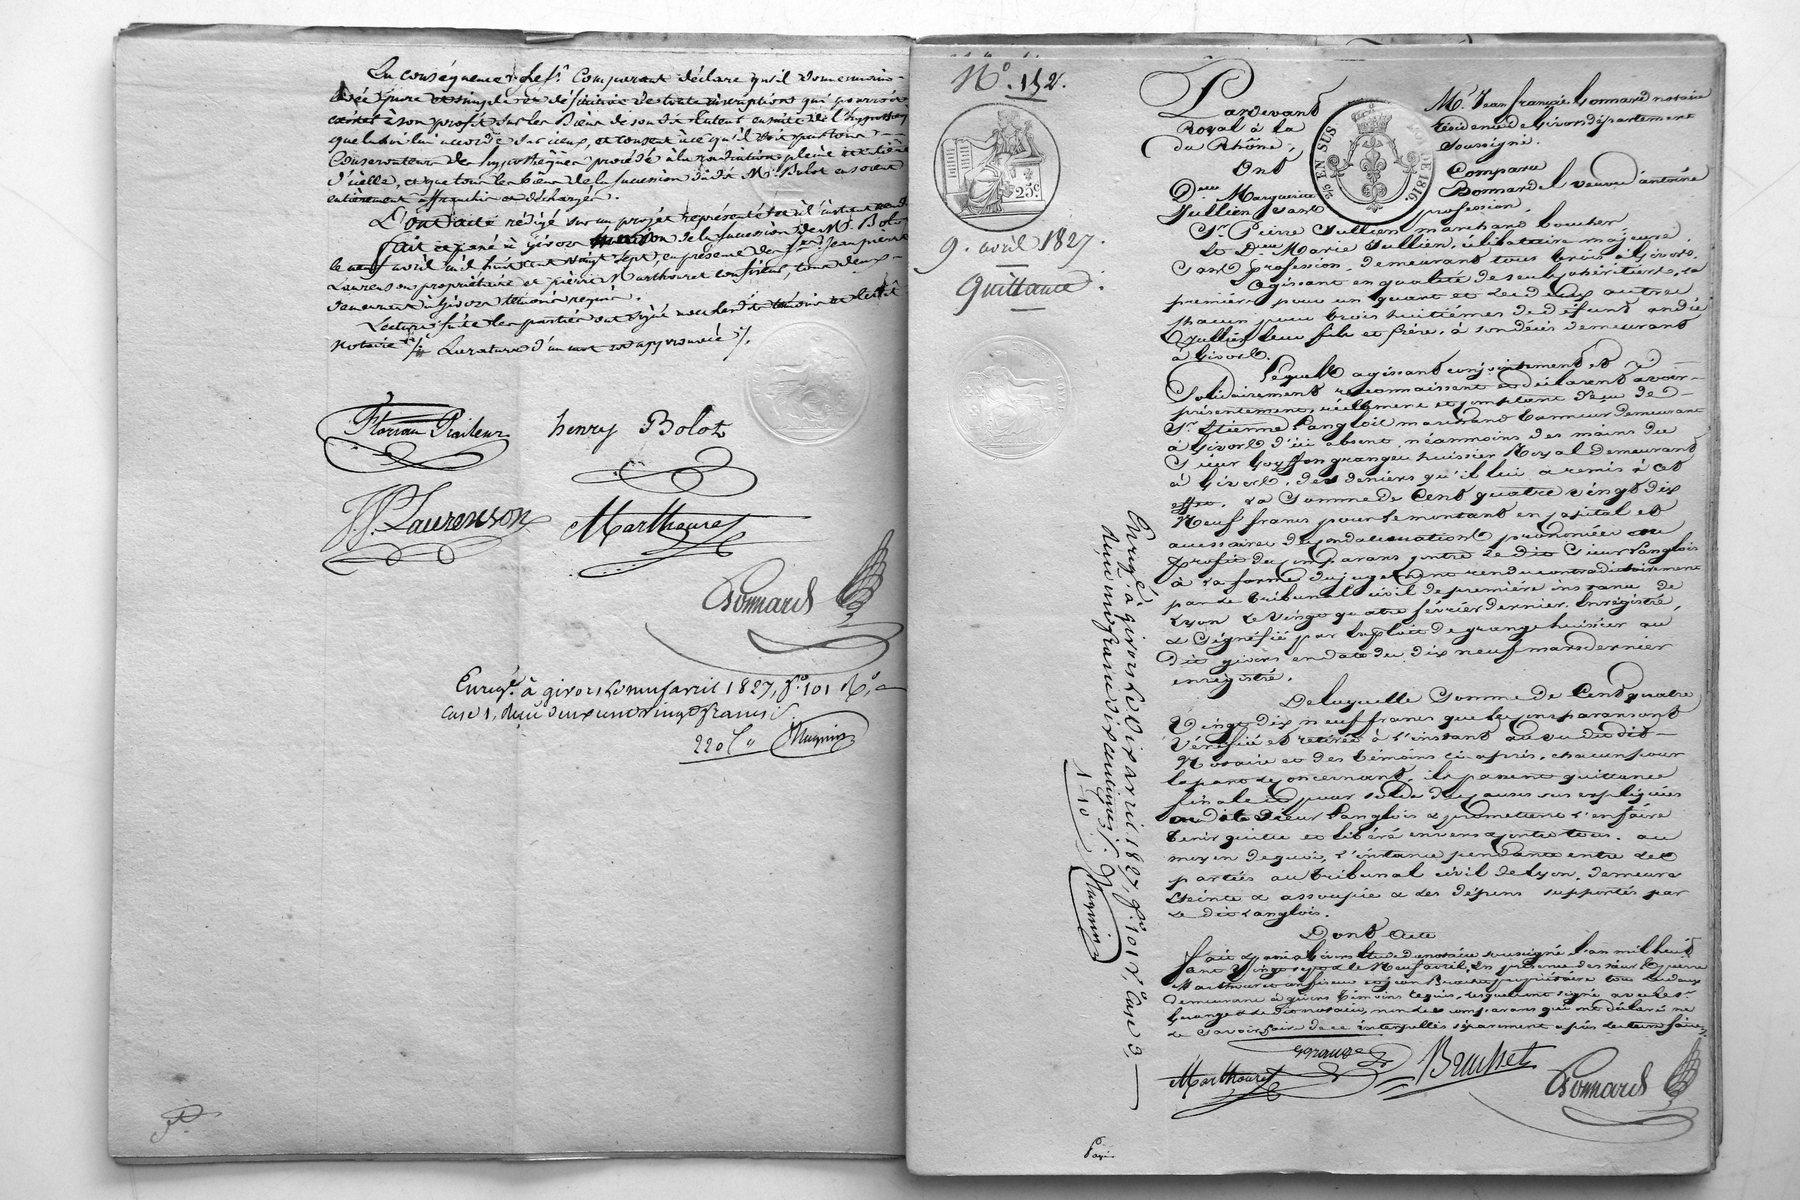 En conséquence le Sr. Comparant déclare qu'il donne main-
levée pure et simple et définitive de toute inscriptions qui pourroient
exister à son profit sur les Biens de son dit
que la loi lui accorde sur iceux, et consent à ce qu'il soit par tous
Conservateurs des hypothèques procédé à la radiation pleine et entière
d'icelle, et que tous les biens de la succession dudit Mr. Bolot en soient
entièrement affranchis et déchargés.
Dont acte rédigé sur un projet représenté et à l'instant rendu
fait et passé à Givors de la succession de Mr. Bolot
le neuf avril mil huit cent vingt sept, en présence des Srs. Jean pierre
Laurenson propriétaire et pierre Marthouret confiseur, tous deux
demeurant à Givors témoins requis.
Lecture faite les parties ont signé avec les dits témoins et le dit
notaire ./. Lurature d'un mot approuvée ./.
Florian Praileur henry Bolot
JP. Laurenson Marthouret
Bonnard
Enregé. à givors le neuf avril 1827, fo. 101 Ro.
Case 1, Reçu deux cent vingt francs
220 f " Magnin
No. 152.
25c
9. avril 1827.
Quittance.
EN SUS
DE 1816
Pardevant Me. Jean françois Bonnard notaire
Royal à la résidence de Givors département
du Rhône, Soussigné.
Ont Comparu
Dme. Marguerite Bonnardel veuve d'antoine
Jullien sans profession,
Sr. Pierre Jullien marchand boucher
Et Dlle. Marie Jullien, célibataire majeure
Sans profession, demeurant tous trois à Givors.
agissant en qualité de seuls héritiers, la
première pour un quart et les deux autres
chacun pour trois huitièmes de défunt andré
Jullien leur fils et frère, à son décès demeurant
à Givors.
Lesquels agissant conjointement et
Solidairement reconnaissent et déclarent avoir
présentement, réellement et comptant reçu de
Sr. Etienne Langlois marchand tanneur demeurant
à Givors d'ici absent, néanmoins des mains du
Sieur Goyffon grange huissier Royal demeurant
à Givors, des deniers qu'il lui a remis à cet
effet, la Somme de Cent quatre vingt dix
Neuf francs pour le montant en capital et
accessoires de condamnations prononcées au
profit des comparans contre le dit Sieur Langlois
à la forme du jugement rendu contradictoirement
par le tribunal civil de première instance de
Lyon le vingt quatre février dernier, Enregistré,
& Signifié par Exploit de grange huissier au
dit givors en date du dix neuf mars dernier
enregistré.
De laquelle Somme de Cent quatre
Vingt dix neuf francs que les comparans ont
Vérifiée et retirée à l'instant au vu du dit
Notaire et des témoins ci après, chacun pour
la part le concernant, ils passent quittance
finale et pour solde des causes sus expliquées
au dit Sieur Langlois & promettent l'en faire
tenir quitte et libéré envers & contre tous. au
moyen de quoi, l'instance pendante entre les
parties au tribunal civil de Lyon, demeure
éteinte & assoupie & les dépens supportés par
le dit Langlois.
Dont Acte
fait & passé à Givors étude du notaire soussigné l'an mil huit
cent Vingt sept & le Neuf avril, En présence des sieurs pierre
Marthouret confiseur et jean Brachet propriétaire tous les deux
demeurans à givors témoins requis, lesquels ont signé avec le Sr.
Grange & le dit notaire, non les comparans qui ont déclaré ne
le Savoir faire de ce interpellés séparément après lecture faite.
Grange
Marthouret Brachet Bonnard
Enregé. à givors le dix avril 1827, fo. 101 Ro. Case 3,
Reçu un franc dix centimes ./.
1.10 Magnin